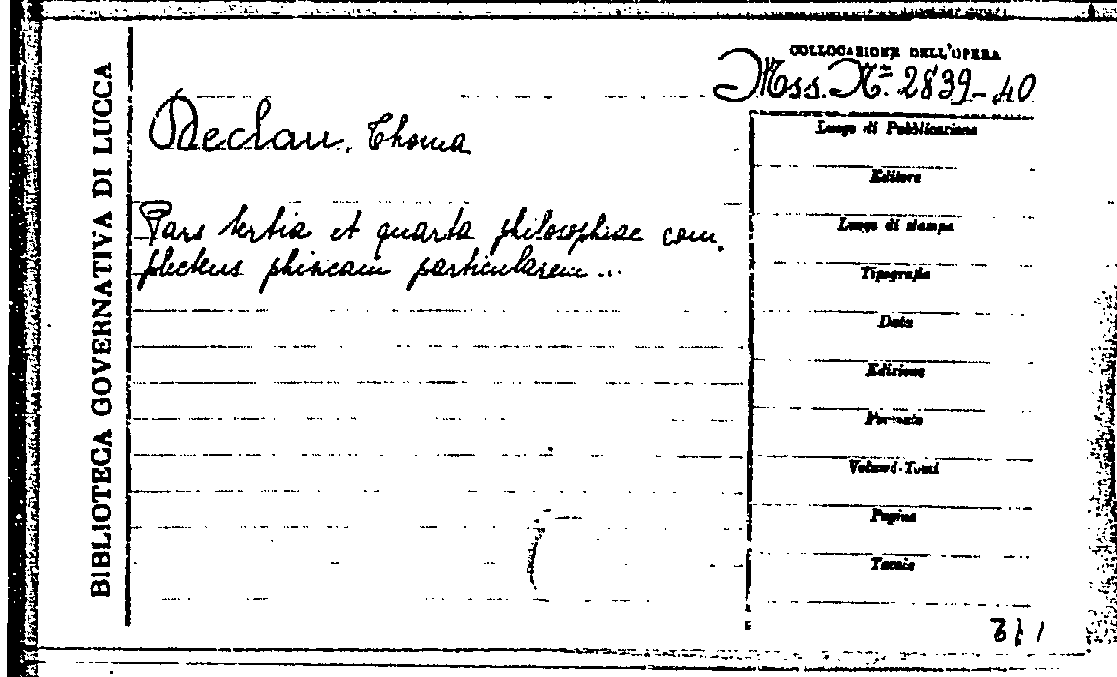 BIBLIOTECA GOVERNATIVA DI LUCCA
COLLOCAZIONE DELL'OPERA
Mss. N.º 2839-40
Declau, Thoma
Pars tertia et quarta philosophiae com.
plectens phiscam particularem...
Luogo di Pubblicazione
Editore
Luogo di stampa
Tipografia
Data
Edizione
Formato
Volumi-Tomi
Pagine
Tomio